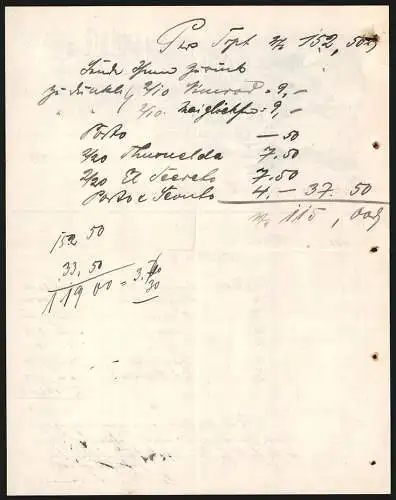 Per Sept. M 152, 50
Sende Ihnen zurück
zu dunkel 2/10 Konrad = 9,–
" 2/10 Maiglöckchen = 9,–
Porto –50
2/20 Thusnelda 7.50
2/20 El Secreto 7.50
Porto & Sconto 4.– 37. 50
M 115, 00
152 50
33, 50
119 00 = 3,
30